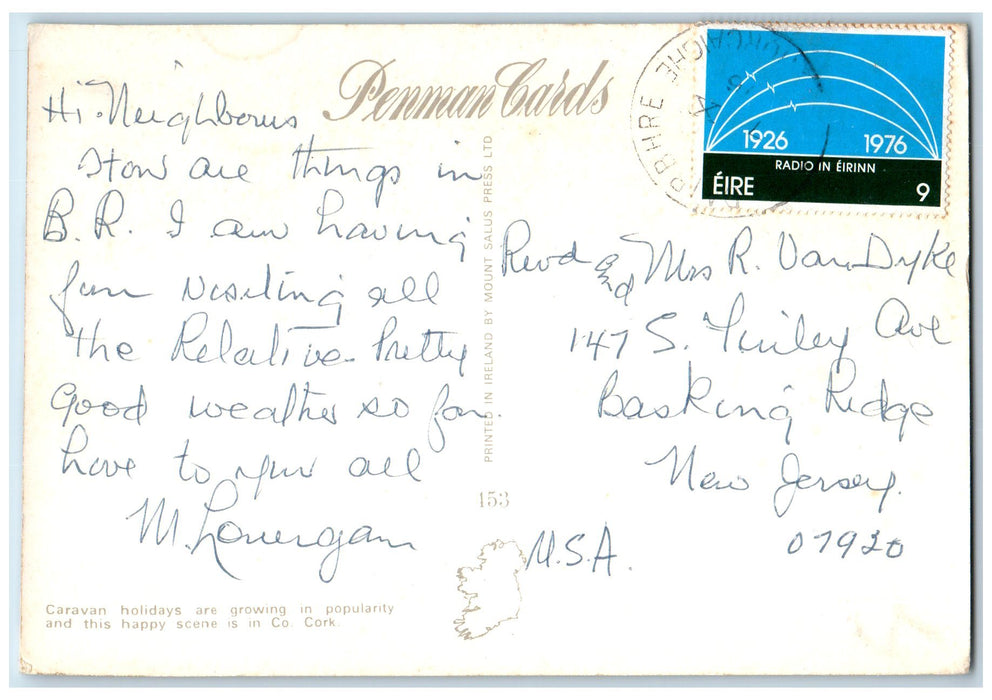 Penman Cards
Hi Neighbours
How are things in
B.R. I am having
fun visiting all
the Relative. Pretty
Good weather so far.
Love to you all
M. Lonergan
Caravan holidays are growing in popularity
and this happy scene is in Co. Cork.
PRINTED IN IRELAND BY MOUNT SALUS PRESS LTD
153
1926 1976
RADIO IN ÉIRINN
ÉIRE 9
Revd and Mrs R. Van Dyke
147 S. Finley Ave
Basking Ridge
New Jersey.
U.S.A. 07920